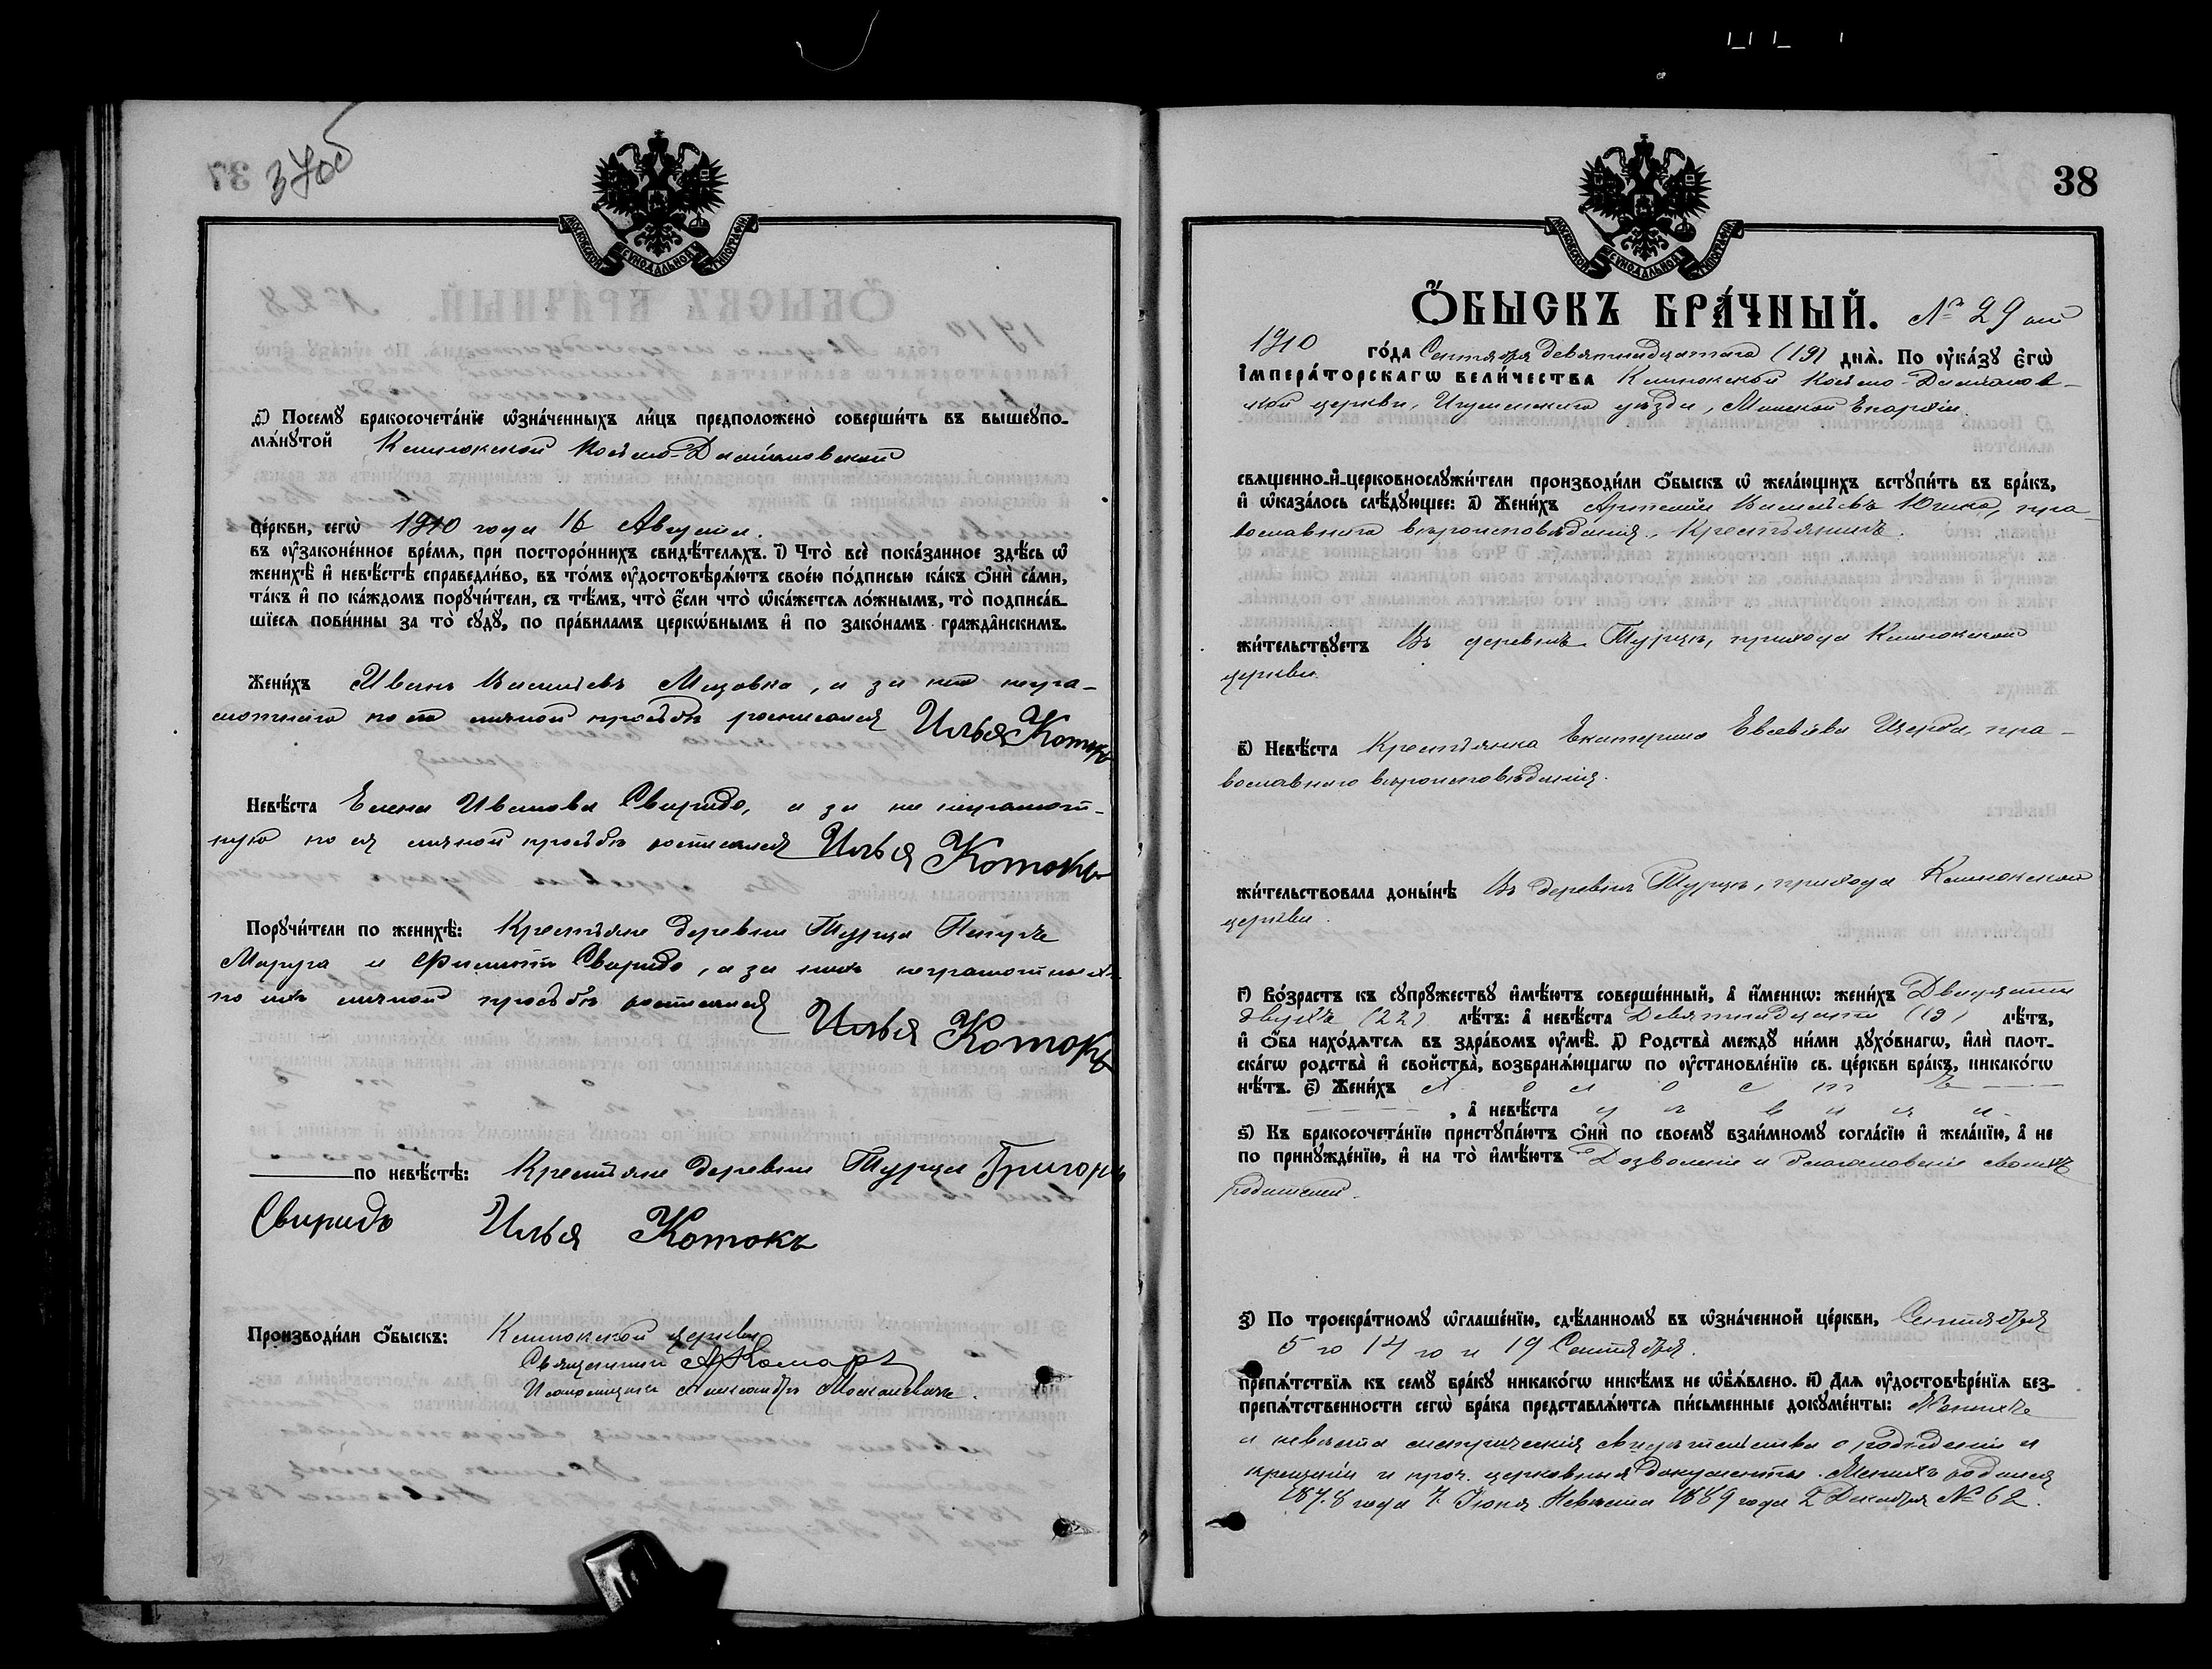 37об
МОСКОВСКОЙ СѴНОДАЛЬНОЙ ТИПОГРАФІИ
Посемꙋ̀ бракосочета́нїе ѡзна́ченныхъ ли́цъ предположено̀ соверши́ть въ вышеꙋпо-
мѧ́нꙋтой Клинокской Косьмо-Даміановской
це́ркви, сегѡ̀ 1910 года 16 Августа.
въ ᲂу҆зако́ненное вре́мѧ, при посторо́ннихъ свидѣ́телѧхъ. і҃) Что̀ всѐ пока́занное здѣ́сь ѡ҆
женихѣ̀ и҆ невѣ́стѣ справедли́во, въ то́мъ ᲂу҆достовѣрѧ́ютъ свое́ю по́дписью ка́къ ѻ҆нѝ са́ми,
та́къ и҆ по ка́ждомъ порꙋчи́тели, съ тѣ́мъ, что̀ є҆́сли что̀ ѡ҆ка́жетсѧ ло́жнымъ, то̀ подписа́в-
шїесѧ пови́нны за то̀ сꙋдꙋ̀, по пра́виламъ церкѡ́внымъ и҆ по зако́намъ гражда̂нскимъ.
Жени́хъ Иванъ Васильевъ Мазовка, а за него негра-
мотнаго по его личной просьбѣ росписался Илья Котокъ
Невѣ́ста Елена Иванова Свиридо, а за нее неграмот-
ную по ея личной просьбѣ росписался Илья Котокъ
Порꙋчи́тели по женихѣ̀: Крестьяне деревни Турца
и Филиппъ Свиридо, а за нихъ неграмотныхъ
по ихъ личной просьбѣ росписался Илья Котокъ
по невѣ́стѣ: Крестьяне деревни Турца Григорій
Свиридъ Илья Котокъ
Производи́ли ѻ҆́быскъ: Клинокской церкви
Священникъ А Комаръ
Псаломщикъ Александръ
38
МОСКОВСКОЙ СѴНОДАЛЬНОЙ ТИПОГРАФІИ
Ѻ҆́БЫСКЪ БРА́ЧНЫЙ. № 29 ый
1910 го́да Сентября девятнадцатаго (19) днѧ̀. По ᲂу҆ка́зꙋ є҆гѡ̀
і҆мпера́торскагѡ вели́чества Клинокской Косьмо-Даміанов-
ской церкви, Игуменскаго уѣзда, Минской Епархіи.
свѧще́нно-и҆-церковнослꙋжи́тели производи́ли ѻ҆́быскъ ѡ҆ жела́ющихъ встꙋпи́ть въ бра́къ,
и҆ ѡ҆каза́лось слѣ́дꙋющее: а҃) Жени́хъ Артемій Васильевъ Юшко, пра-
вославнаго вѣроисповѣданія, Крестьянинъ.
жи́тельствꙋетъ Въ деревнѣ Турцѣ, прихода Клинокской
церкви.
в҃) Невѣ́ста Крестьянка Екатерина Щерба, пра-
вославнаго вѣроисповѣданія.
жи́тельствовала доны́нѣ Въ деревнѣ Турцѣ, прихода Клинокской
церкви.
г҃) Во́зрастъ къ сꙋпрꙋ́жествꙋ и҆мѣ́ютъ соверше́нный, а҆ и҆́меннѡ: жени́хъ Двадцати
двухъ (22) лѣ́тъ: а҆ невѣ́ста Девятнадцати (19) лѣ́тъ,
и҆ ѻ҆́ба нахо́дѧтсѧ въ здра́вомъ ᲂу҆мѣ̀. д҃) Родства̀ междꙋ̀ ни́ми дꙋхо́внагѡ, и҆лѝ плот-
ска́гѡ родства̀ и҆ свойства̀, возбранѧ́ющагѡ по ᲂу҆становле́нїю св. це́ркви бра́къ, никако́гѡ
нѣ́тъ. є҃) Жени́хъ холостъ
, а҆ невѣ́ста дѣвица.
ѕ҃) Къ бракосочета́нїю пристꙋпа́ютъ ѻ҆нѝ по своемꙋ̀ взаи́мномꙋ согла́сїю и҆ жела́нїю, а҆ не
по принꙋжде́нїю, и҆ на то̀ и҆мѣ́ютъ Дозволеніе и благословеніе своихъ
родителей.
з҃) По троекра́тномꙋ ѡ҆глаше́нїю, сдѣ́ланномꙋ въ ѡ҆зна́ченной це́ркви, Сентября
5 го 14 го и 19 Сентября.
препѧ́тствїѧ къ семꙋ̀ бра́кꙋ никако́гѡ никѣ́мъ не ѡ҆б̾ѧ́влено. и҃) Длѧ ᲂу҆достовѣре́нїѧ без-
препѧ́тственности сегѡ̀ бра́ка представлѧ́ютсѧ пи́сьменные докꙋме́нты: Жениха
и невѣсты метрическія свидѣтельства о рожденіи и
крещеніи и проч. церковныя документы. Женихъ родился
187.8 года 7. Іюня. Невѣста 1889 года 2 Декабря № 62.